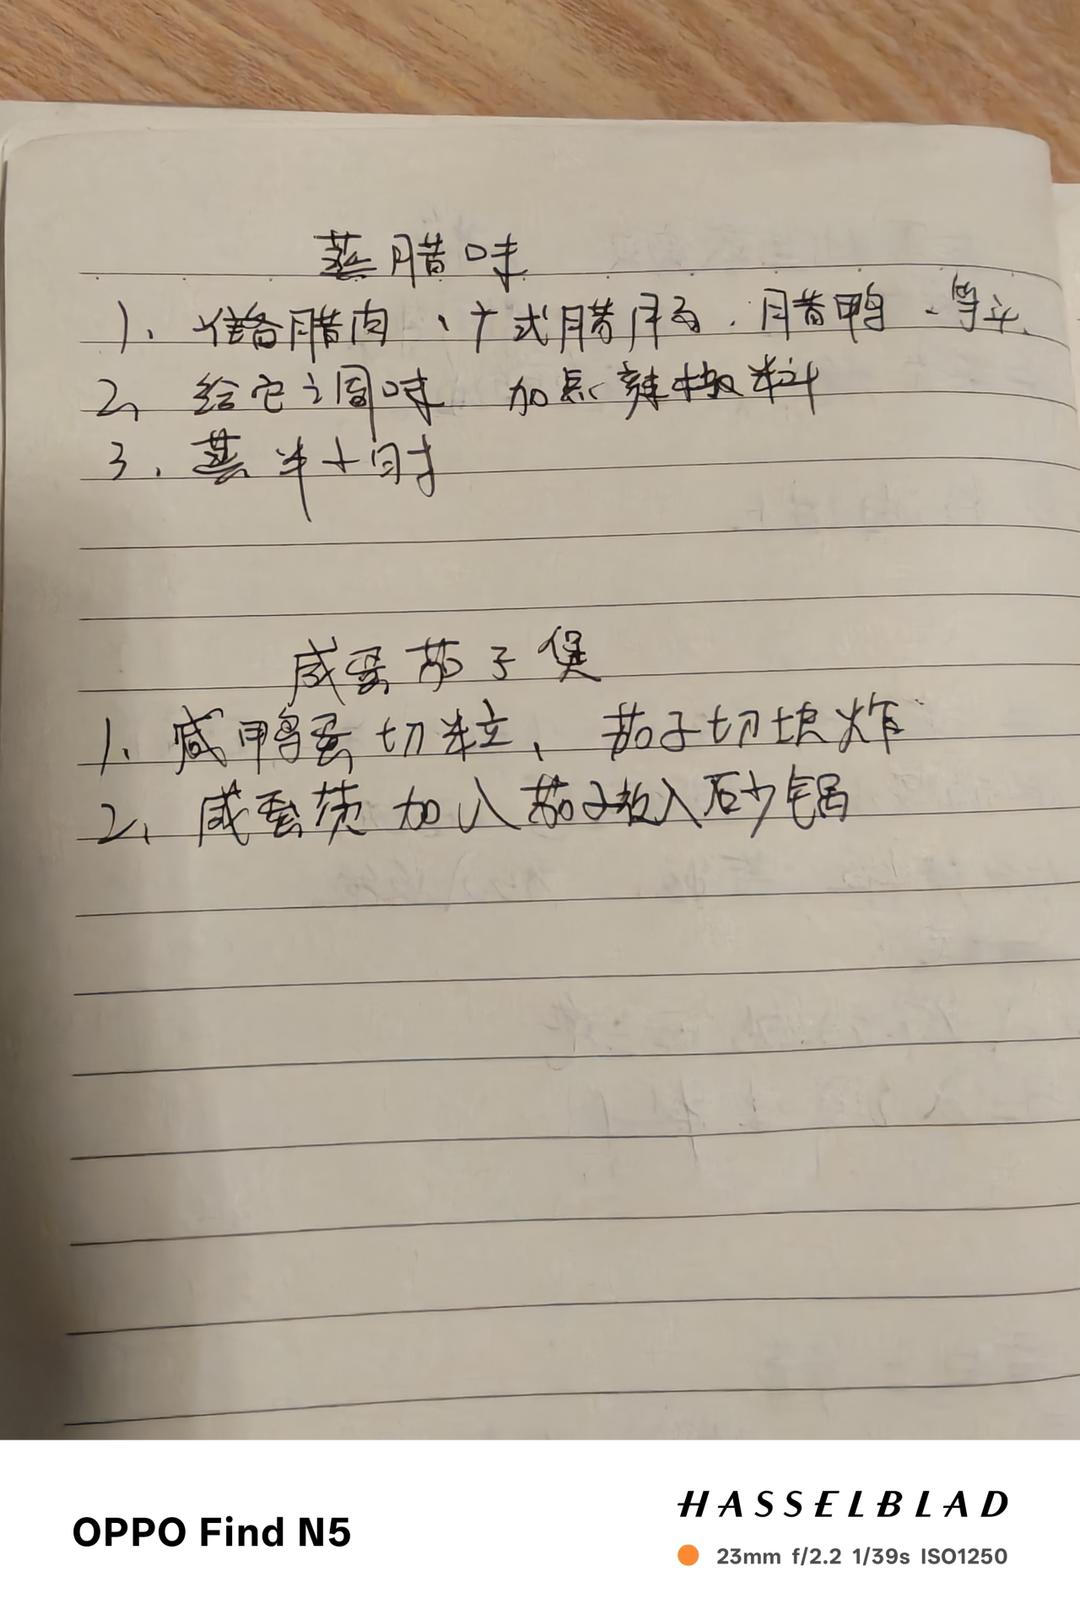 蒸腊味
1、准备腊肉、广式腊肠、腊鸭、等
2、给它调味 加点辣椒料
3、蒸半小时
咸蛋茄子煲
1、咸鸭蛋切粒、茄子切块炸
2、咸蛋黄加入茄子放入砂锅
OPPO Find N5
HASSELBLAD
23mm f/2.2 1/39s ISO1250